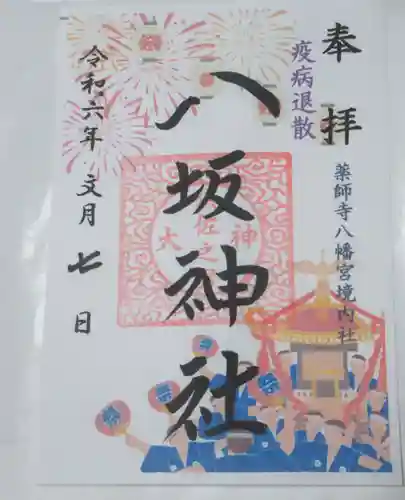 奉拝
疫病退散
薬師寺八幡宮境内社
八坂神社
令和六年文月七日
祭
祭
祭